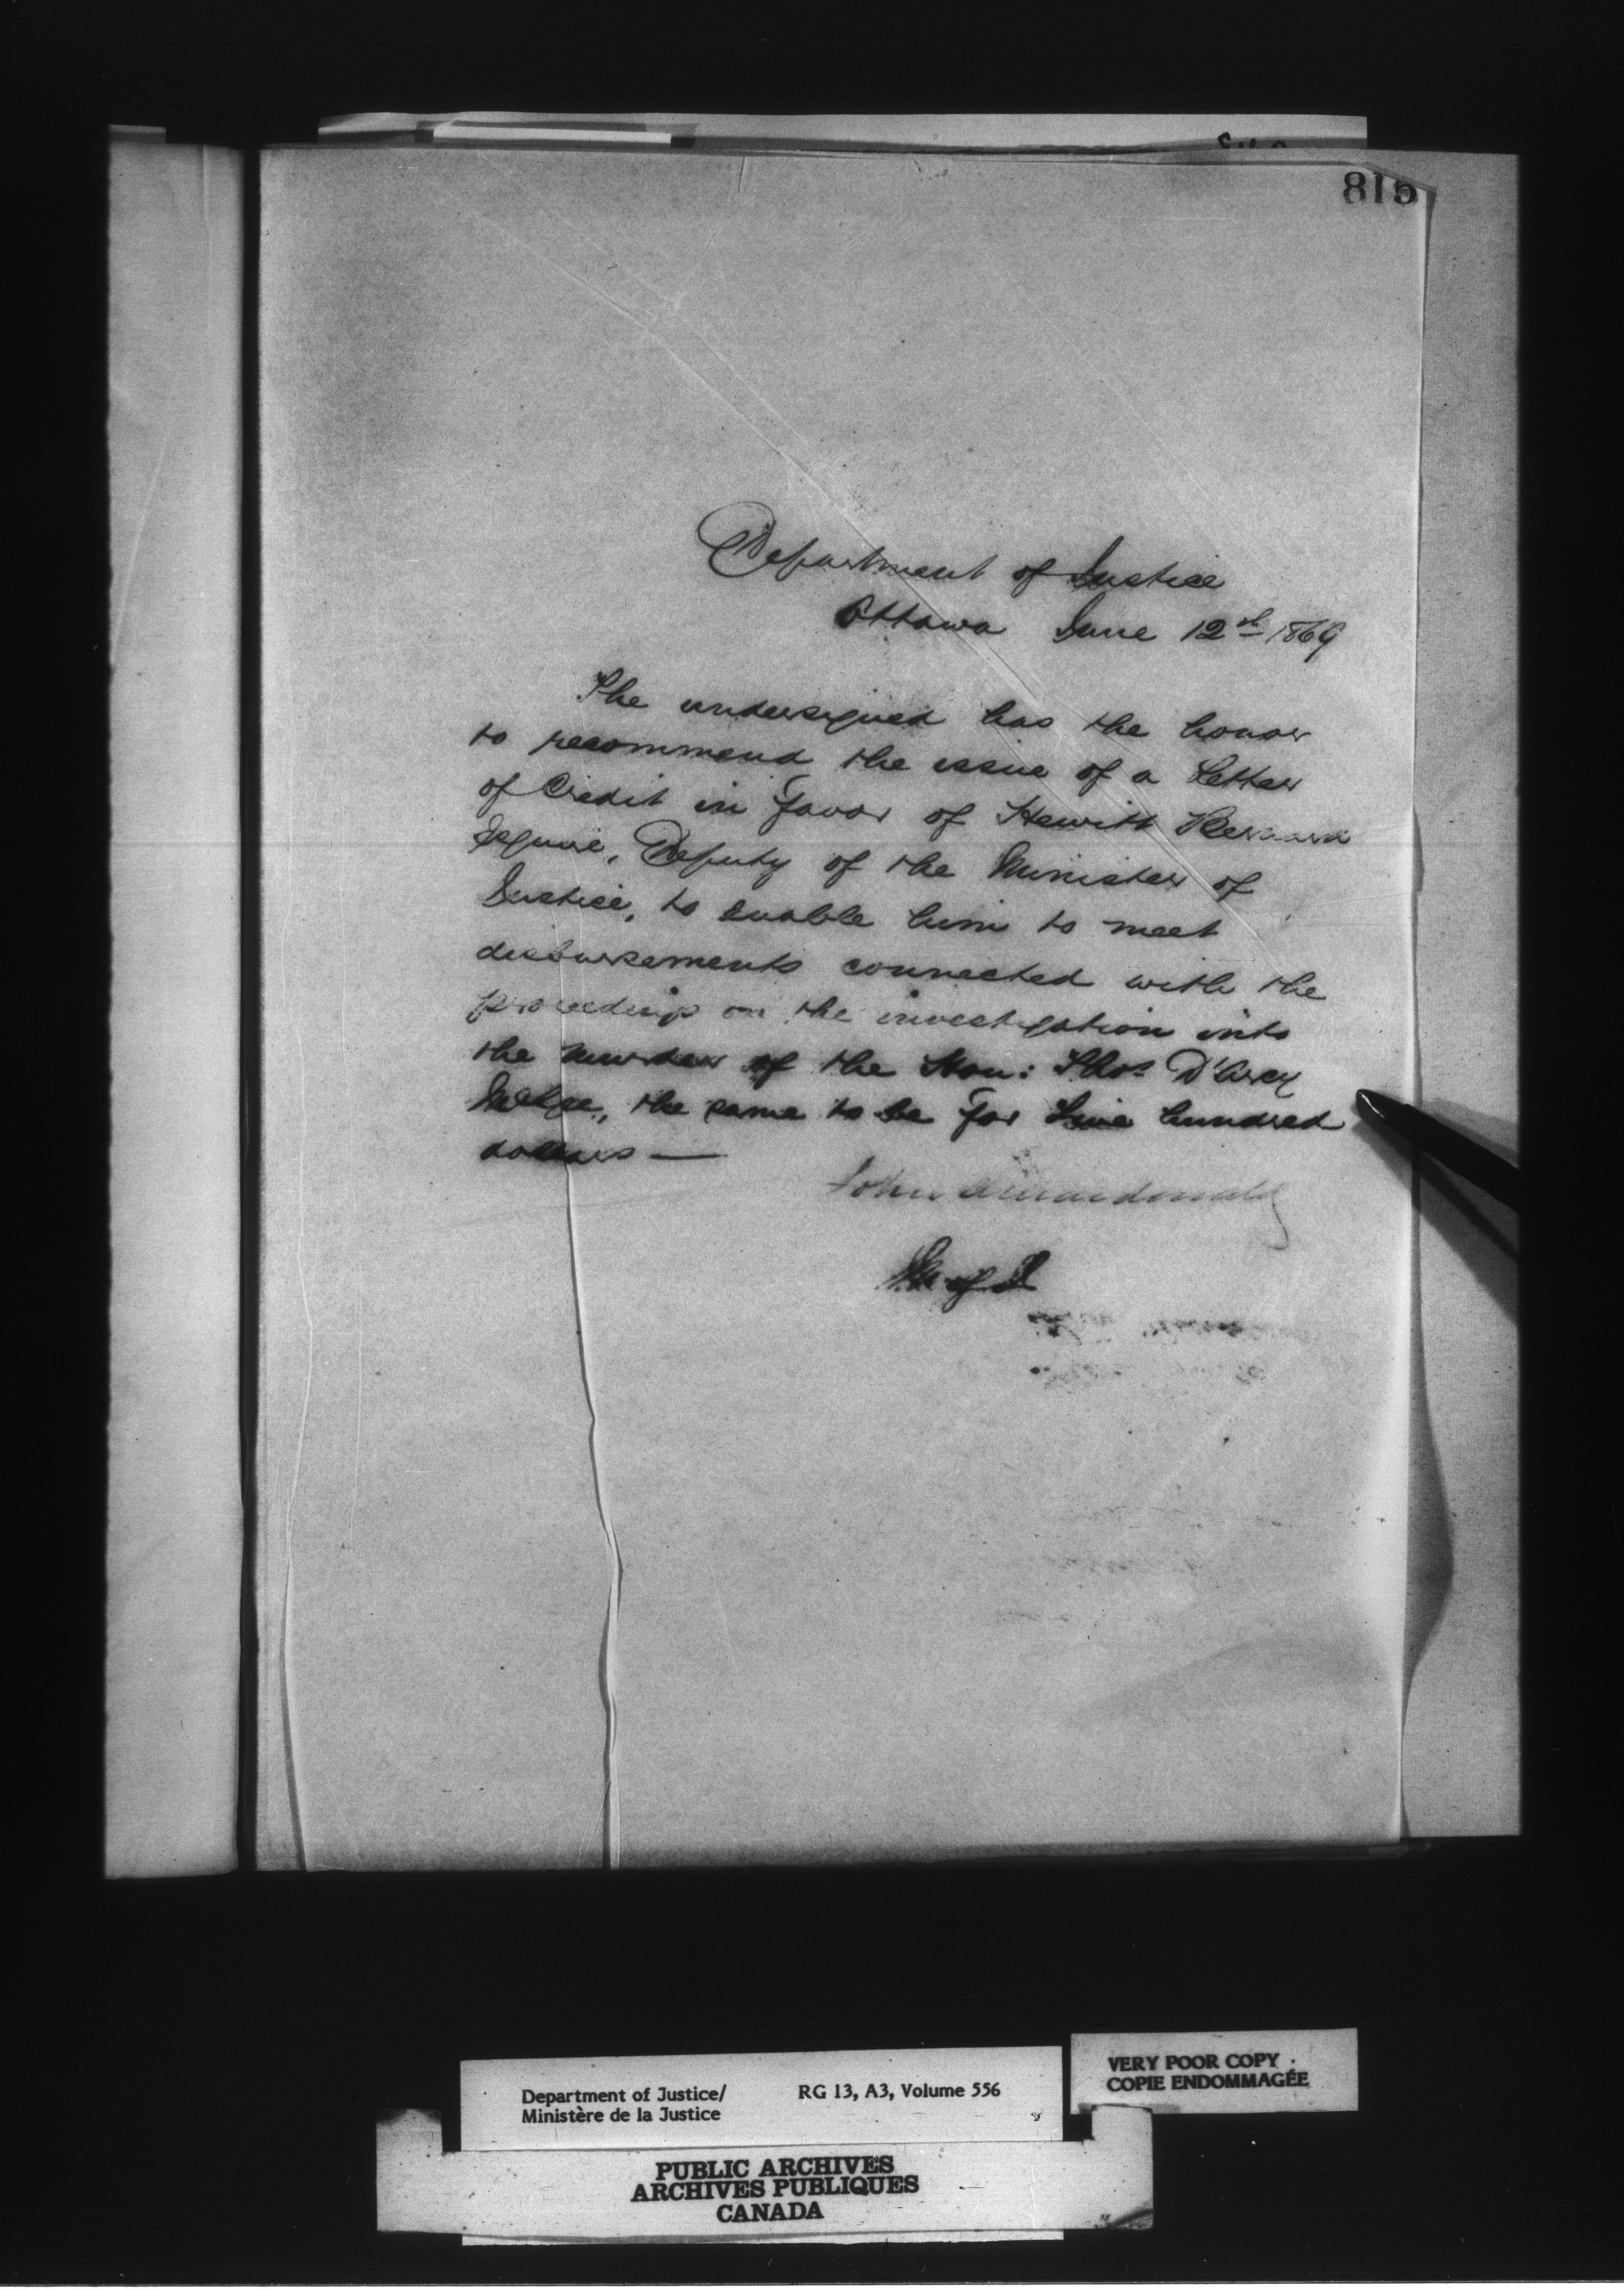 815
Department of Justice
Ottawa June 12th 1869
The undersigned has the honor
to recommend the issue of a Letter
of Credit in favor of Hewitt Bernard
Esquire, Deputy of the Minister of
Justice, to enable him to meet
disbursements connected with the
proceedings on the investigation into
the murder of the Hon: Thos D'Arcy
McGee, the same to be for five hundred
dollars —
John A Macdonald
M of J
Department of Justice/ RG 13, A3, Volume 556
Ministère de la Justice
VERY POOR COPY
COPIE ENDOMMAGÉE
PUBLIC ARCHIVES
ARCHIVES PUBLIQUES
CANADA